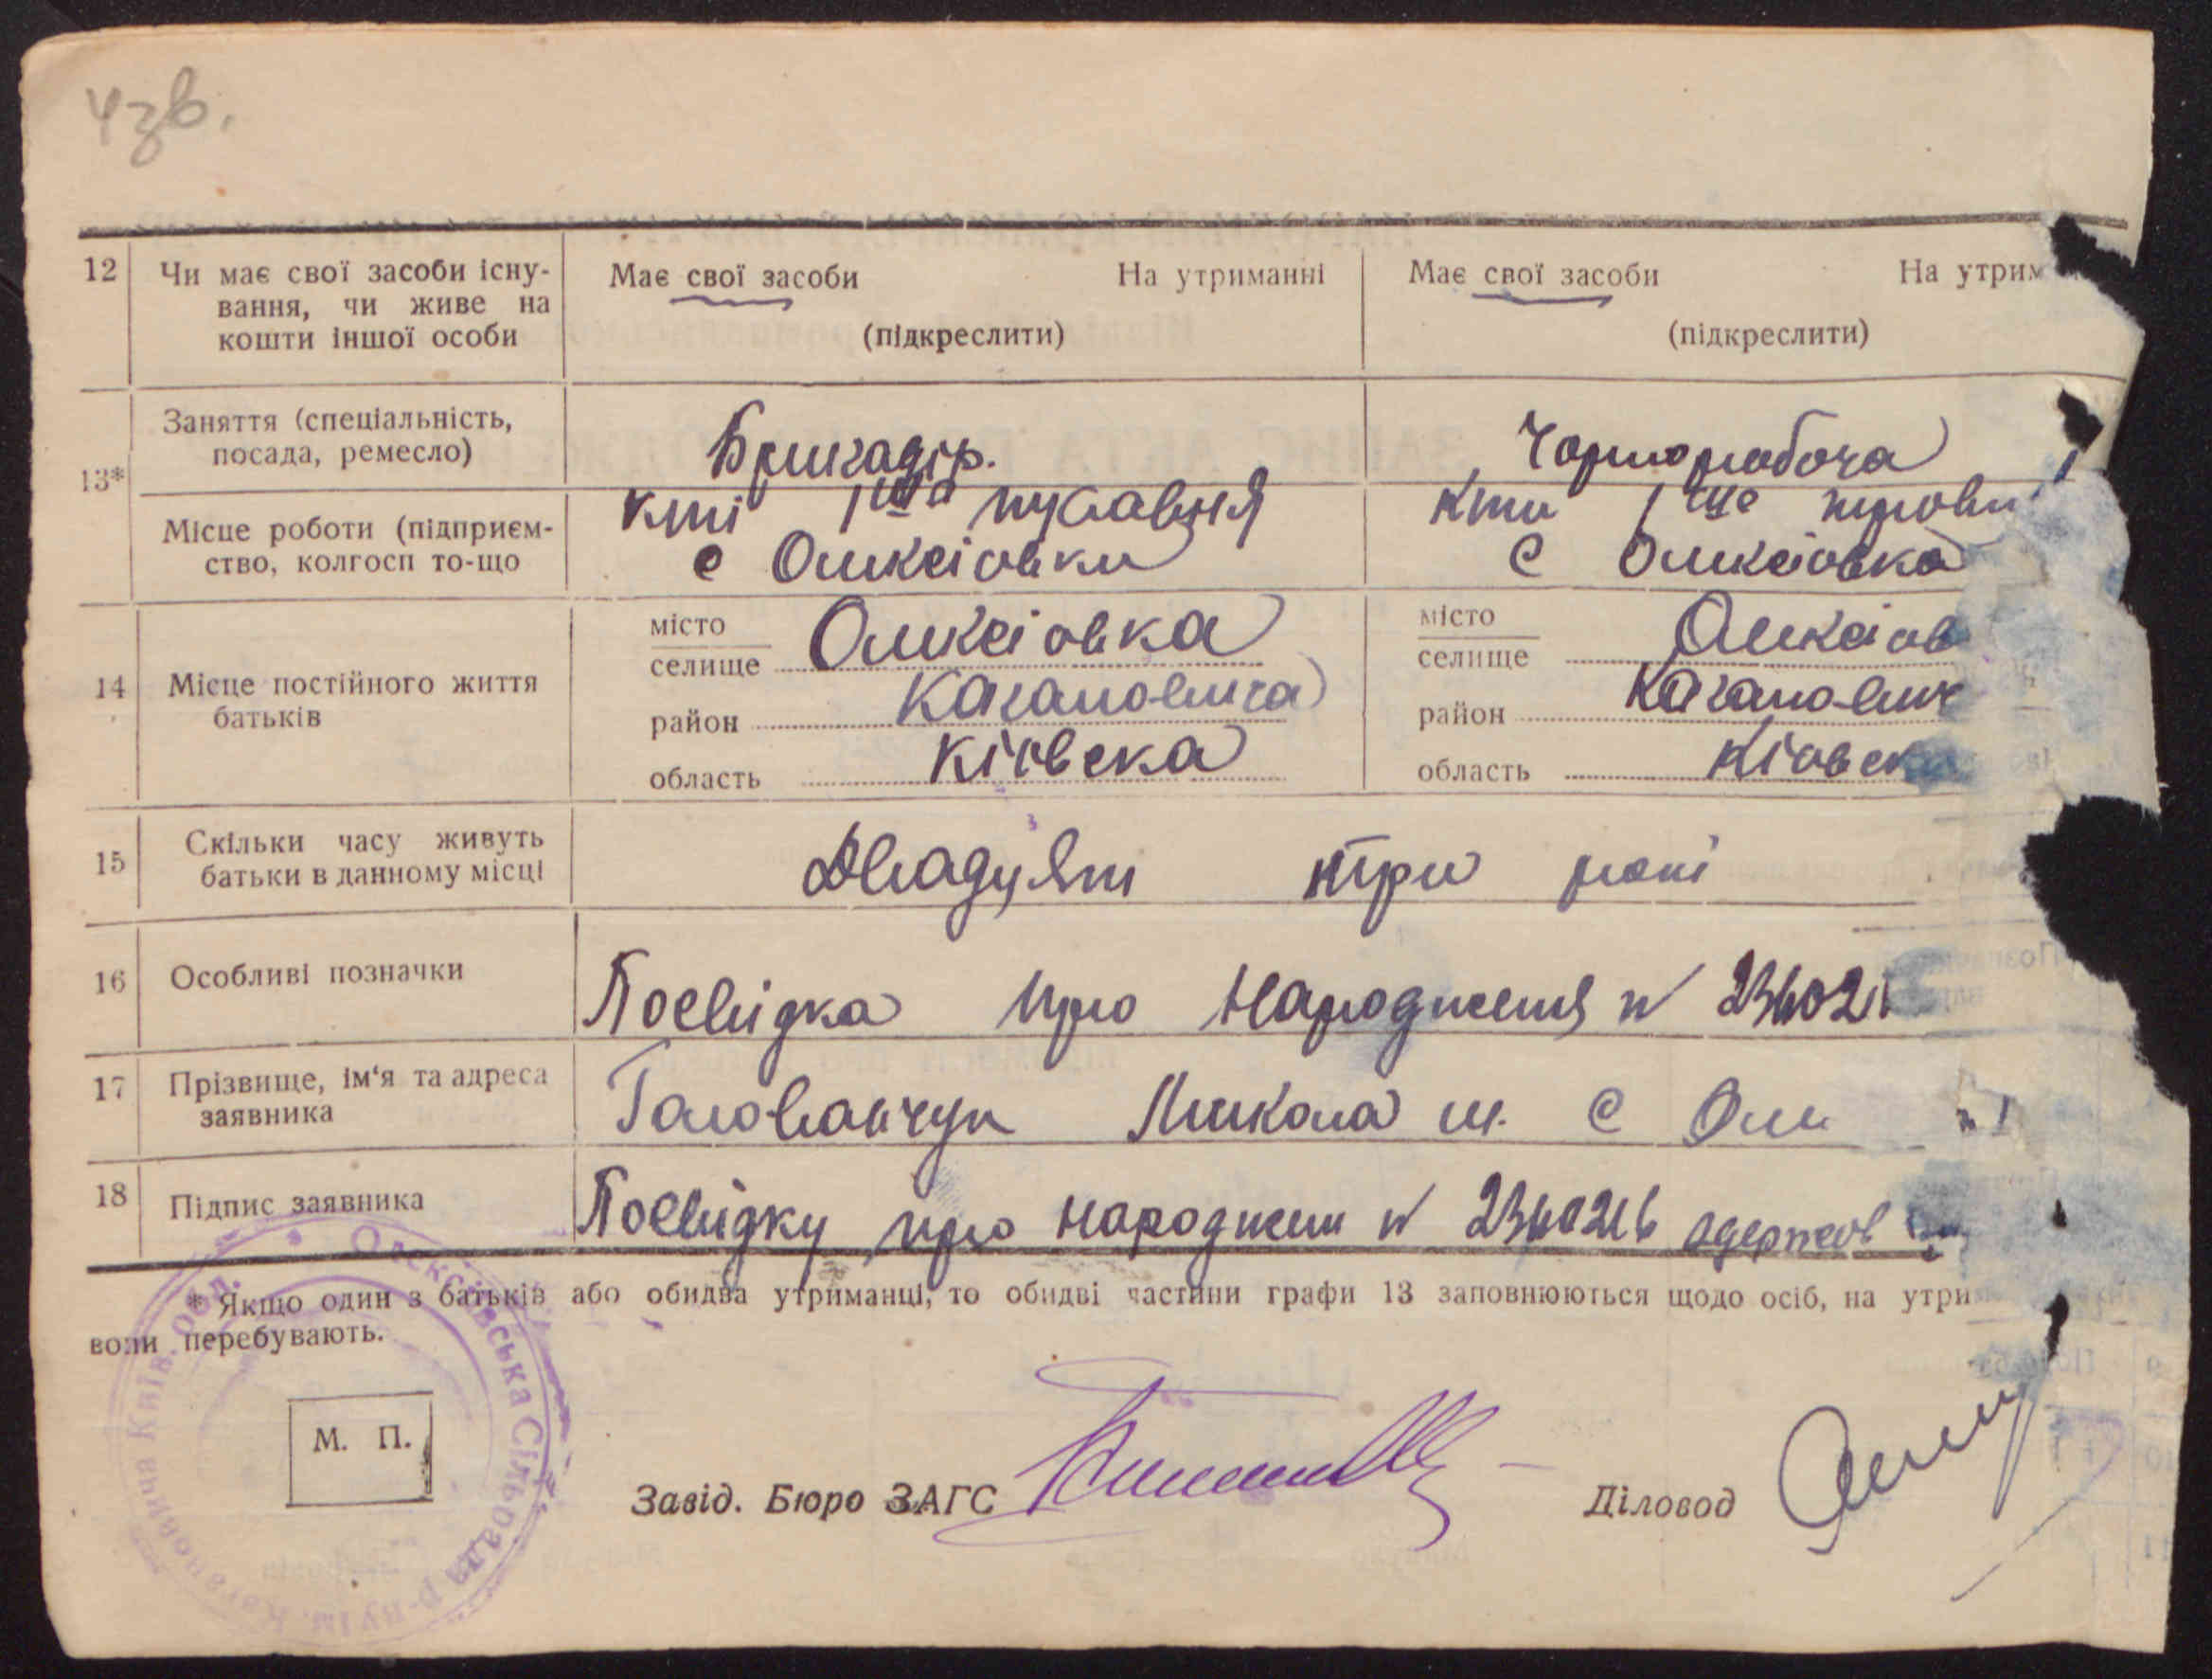 4зв.
12 Чи має свої засоби існу-
вання, чи живе на
кошти іншої особи
Має свої засоби На утриманні
(підкреслити)
Має свої засоби На утрим
(підкреслити)
13*
Заняття (спеціальність,
посада, ремесло)
Бригадір.
Чорноробоча
Місце роботи (підприєм-
ство, колгосп то-що
1ша
с Оликсіовки
1ше
с Оликсіовка
14 Місце постійного життя
батьків
місто
селище Оликсіовка
район Кагановича
область Кіівска
місто
селище Оликсіов
район Каганович
область Кіівск
15 Скільки часу живуть
батьки в данному місці
Двадцять три рокі
16 Особливі позначки
Посвідка про народження N 234021
17 Прізвище, ім‘я та адреса
заявника
Голованчук Микола с Оли
18 Підпис заявника
Посвідку про народжен N 2340216 одержов
* Якщо один з батьків або обидва утриманці, то обидві частини графи 13 заповнюються щодо осіб, на утри
вони перебувають.
М. П.
Олексіївська Сільрада р-ну ім. Кагановича Київ. обл.
Завід. Бюро ЗАГС
Діловод